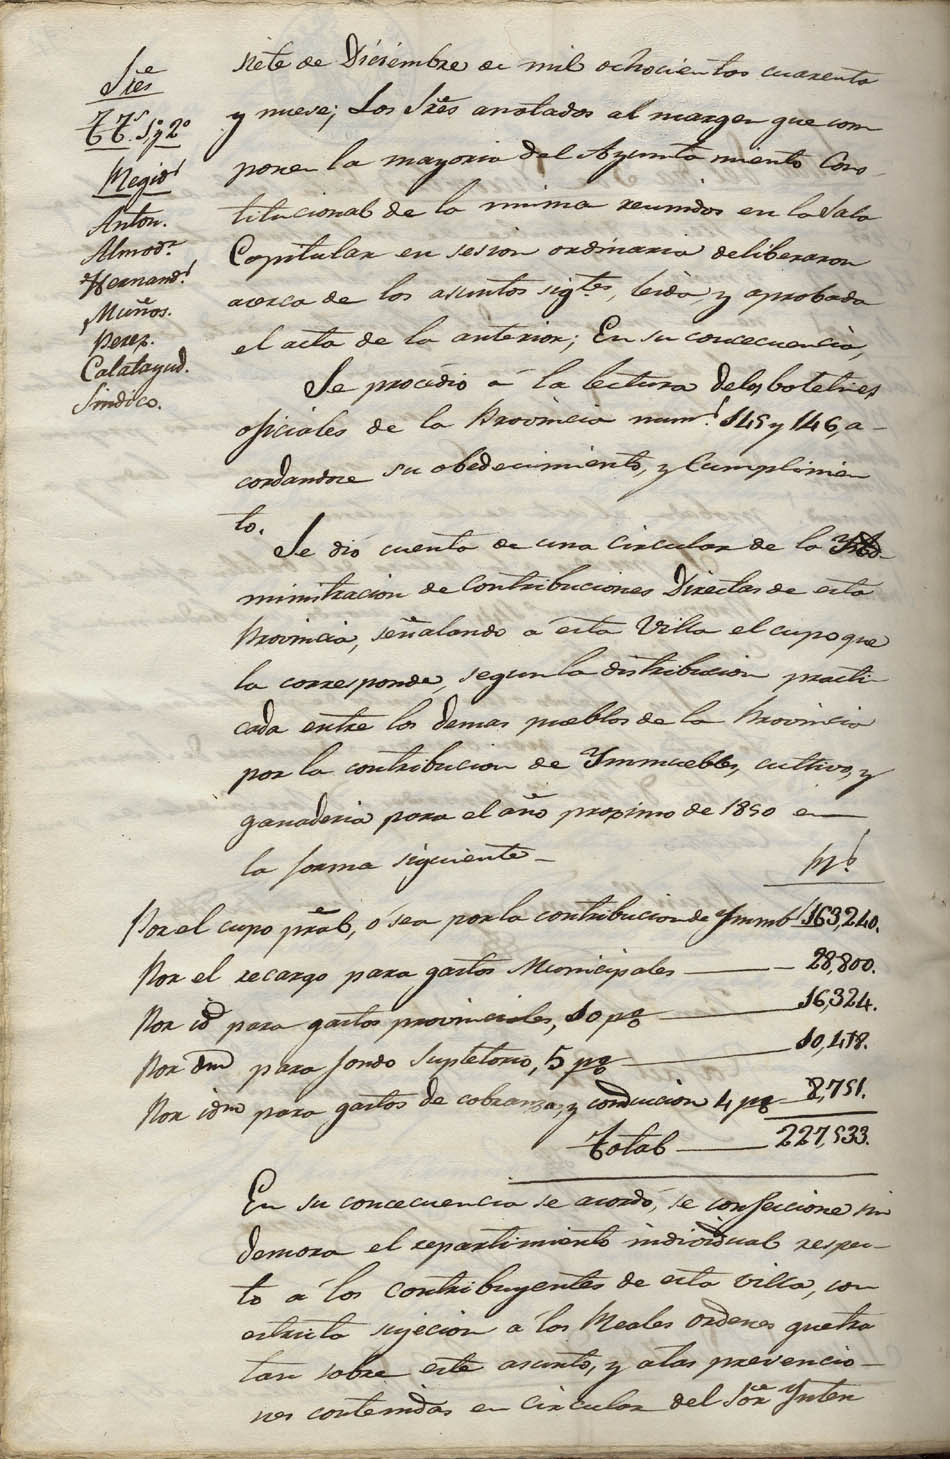 Sres
TT.s 1º y 2º
Regid.s
Anton.
Almod.r
Hernand.s
Muños.
Perez.
Calatayud.
Sindico.
siete de Diciembre de mil ochocientos cuarenta
y nueve; Los Sres anotados al margen que com
ponen la mayoria del Ayuntamiento Cons-
titucional de la misma reunidos en la Sala
Capitular en sesion ordinaria deliberaron
acerca de los asuntos sigtes, leida y aprobada
el acta de la anterior; En su concecuencia,
Se procedio á la lectura delos boletines
oficiales de la Provincia num.s 145 y 146, a-
cordandose su obedecimiento, y Cumplimien
to.
Se dió cuenta de una circular de la
ministracion de Contribuciones Directas de esta
Provincia, señalando a esta Villa el cupo que
la corresponde, segun la distribucion practi-
cada entre los demas pueblos de la Provincia
por la contribucion de Ynmuebles, cultivo, y
ganaderia para el año proximo de 1850 en
la forma siguiente-
Rs
Por el cupo pral, ó sea por la contribucion de Ynmbs 163,240.
Por el recargo para gastos Municipales 28,800.
Por id para gastos provinciales, 10 p% 16,324.
Por idm para fondo Supletorio, 5 p% 10,418.
Por idm para gastos de cobranza, y conduccion 4 p% 8,751.
Total 227,533.
En su concecuencia se acordó, se confeccione sin
demora el repartimiento individual respec-
to á los contribuyentes de esta villa, con
estricta sujecion a las Reales ordenes que tra
tan sobre este asunto, y alas prevencio-
nes contenidas en circular del Sor Ynten